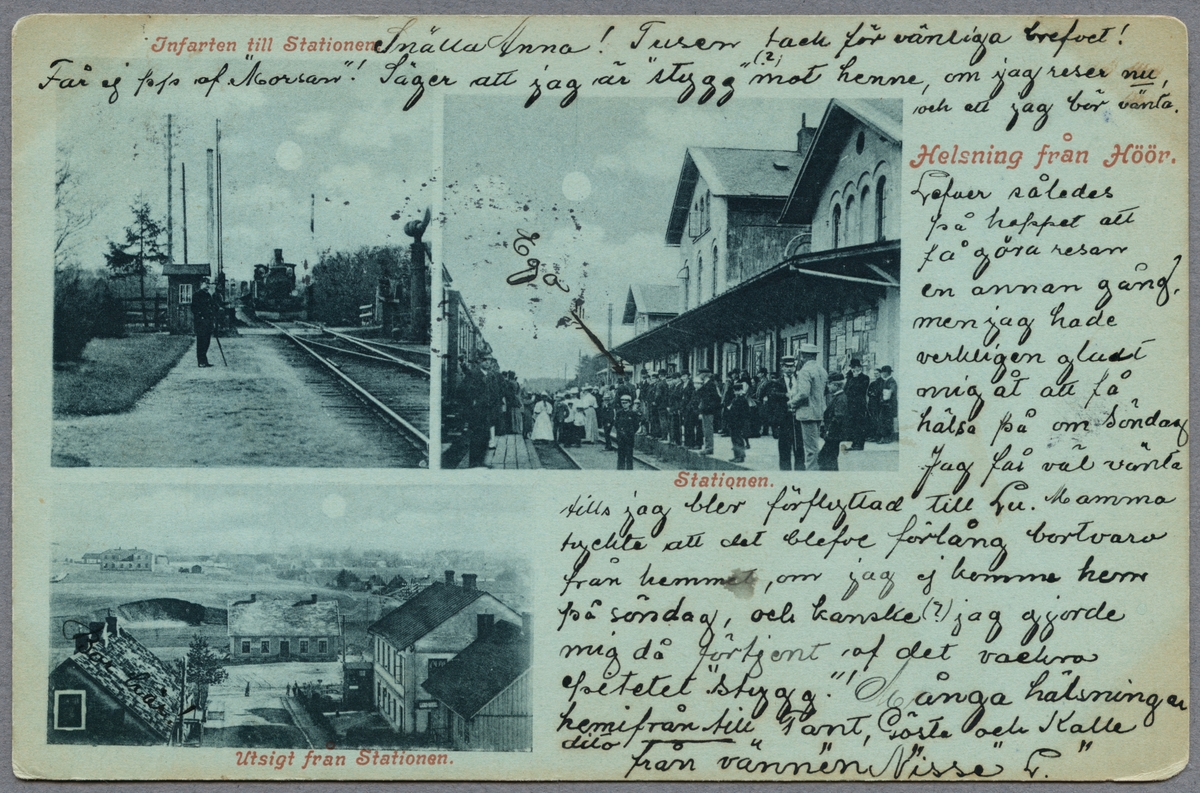 Infarten till Stationen.
Snälla Anna! Tusen tack för vänliga brefvet!
Får ej pp af "Morsan"! Säger att jag är "stygg" (?) mot henne, om jag reser nu,
och att jag bör vänta.
Helsning från Höör.
Lefver således
på hoppet att
få göra resan
en annan gång,
men jag hade
verkligen gladt
mig åt att få
hälsa på om söndag
Jag får väl vänta
Ego
Stationen.
tills jag blir förflyttad till Lu. Mamma
tyckte att det blefve förlång bortvaro
från hemmet, om jag ej komme hem
på söndag, och kanske (?) jag gjorde
mig då förtjent af det vackra
epitetet "stygg"! Många hälsningar
hemifrån till Tant, Gösta och Kalle
dito från vännen Nisse L."
Bor här
Utsigt från Stationen.